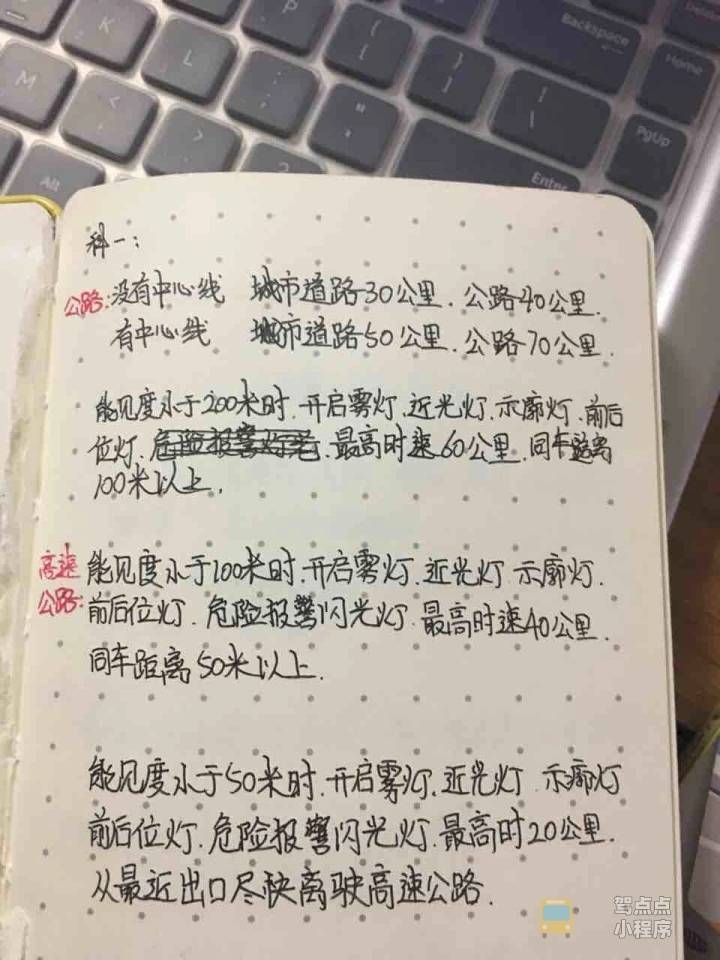 P
{
[
}
]
Backspace
Delete
Home
K
L
:
;
"
'
|
\
PgUp
M
<
,
>
.
?
Enter
Alt
科一:
公路: 没有中心线 城市道路30公里. 公路40公里.
有中心线 城市道路50公里. 公路70公里.
能见度小于200米时. 开启雾灯. 近光灯. 示廓灯. 前后
位灯. 最高时速60公里. 同车距离
100米以上.
高速 能见度小于100米时. 开启雾灯. 近光灯. 示廓灯.
公路: 前后位灯. 危险报警闪光灯. 最高时速40公里.
同车距离50米以上.
能见度小于50米时. 开启雾灯. 近光灯 示廓灯
前后位灯. 危险报警闪光灯. 最高时20公里.
从最近出口尽快离驶高速公路.
驾点点
小程序